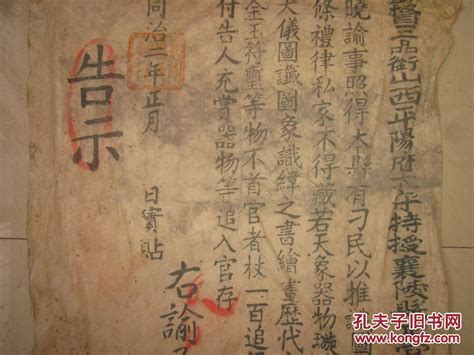 督三品銜山西平陽府特授襄陵縣
曉諭事照得本縣有刁民以推
條禮律私家不得藏若天象器物璣
大儀圖讖圖象讖緯之書繪畫歷代
金玉符璽等物不首官者杖一百追
付告人充賞器物等追入官存
右諭
同治二年正月 日實貼
告示
孔夫子旧书网
www.kongfz.com